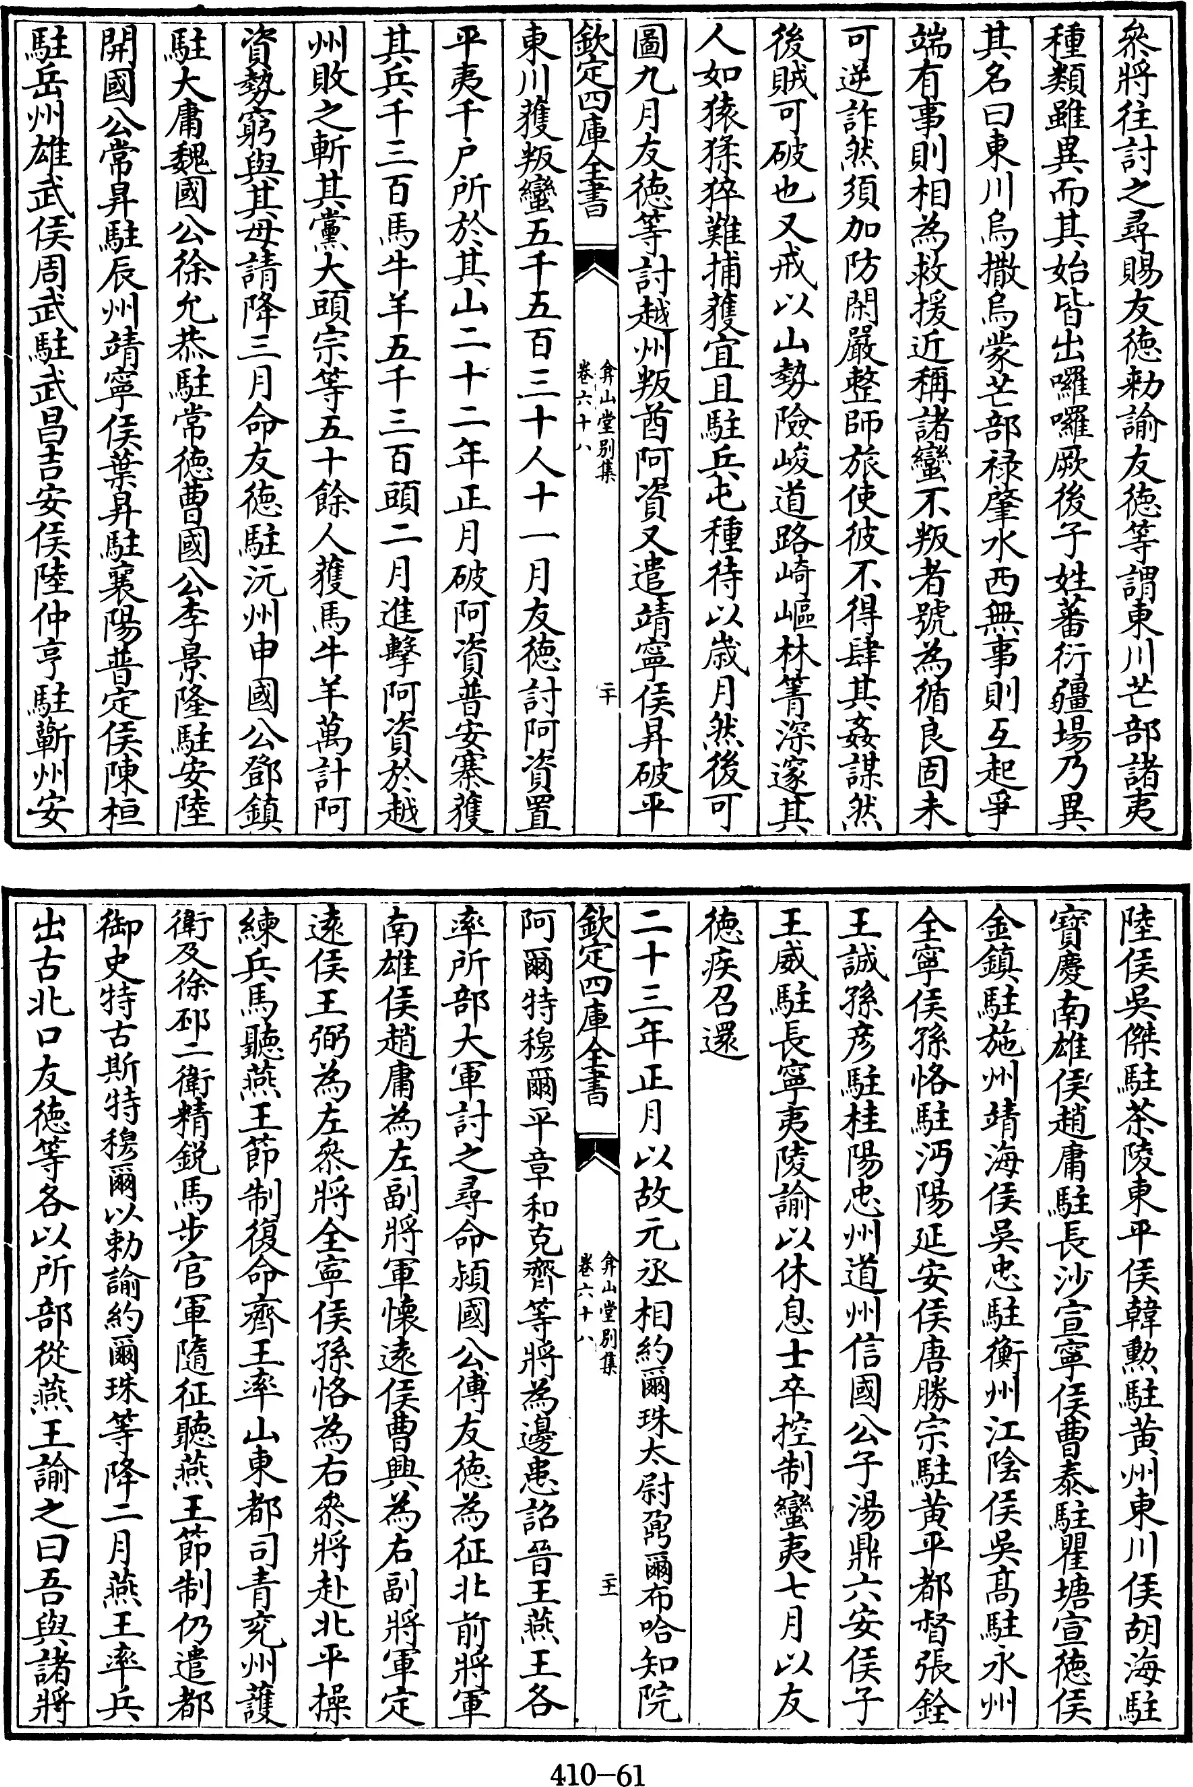 叅將往討之尋賜友徳勅諭友徳等謂東川芒部諸夷
種類雖異而其始皆出囉囉厥後子姓蕃衍疆場乃異
其名曰東川烏撒烏䝉芒部禄肇水西無事則互起爭
端有事則相為救援近稱諸蠻不叛者號為循良固未
可逆詐然須加防閑嚴整師旅使彼不得肆其姦謀然
後賊可破也又戒以山勢險峻道路﨑嶇林箐深邃其
人如猿猱猝難捕獲宜且駐兵屯種待以歳月然後可
圖九月友徳等討越州叛酋阿資又遣靖寧侯昇破平
欽定四庫全書
弇山堂别集
卷六十八
二十
東川獲叛蠻五千五百三十人十一月友徳討阿資置
平夷千户所於其山二十二年正月破阿資普安寨獲
其兵千三百馬牛羊五千三百頭二月進擊阿資於越
州敗之斬其黨大頭宗等五十餘人獲馬牛羊萬計阿
資勢窮與其母請降三月命友徳駐沅州申國公鄧鎮
駐大庸魏國公徐允恭駐常徳曹國公李景隆駐安陸
開國公常昇駐辰州靖寧侯葉昇駐襄陽普定侯陳桓
駐岳州雄武侯周武駐武昌吉安侯陸仲亨駐蘄州安
陸侯吳傑駐茶陵東平侯韓勲駐黄州東川侯胡海駐
寶慶南雄侯趙庸駐長沙宣寧侯曹泰駐瞿塘宣徳侯
金鎮駐施州靖海侯吳忠駐衡州江陰侯吳髙駐永州
全寧侯孫恪駐沔陽延安侯唐勝宗駐黄平都督張銓
王誠孫彦駐桂陽忠州道州信國公子湯鼎六安侯子
王威駐長寧夷陵諭以休息士卒控制蠻夷七月以友
徳疾召還
二十三年正月以故元丞相約爾珠太尉鼐爾布哈知院
欽定四庫全書
弇山堂别集
卷六十八
二十一
阿爾特穆爾平章和克齊等將為邊患詔晉王燕王各
率所部大軍討之尋命潁國公傅友徳為征北前將軍
南雄侯趙庸為左副將軍懐逺侯曹興為右副將軍定
逺侯王弼為左叅將全寧侯孫恪為右叅將赴北平操
練兵馬聽燕王節制復命齊王率山東都司青兖州䕶
衛及徐邳二衛精鋭馬步官軍隨征聽燕王節制仍遣都
御史特古斯特穆爾以勅諭約爾珠等降二月燕王率兵
出古北口友徳等各以所部從燕王諭之曰吾與諸將
410-61